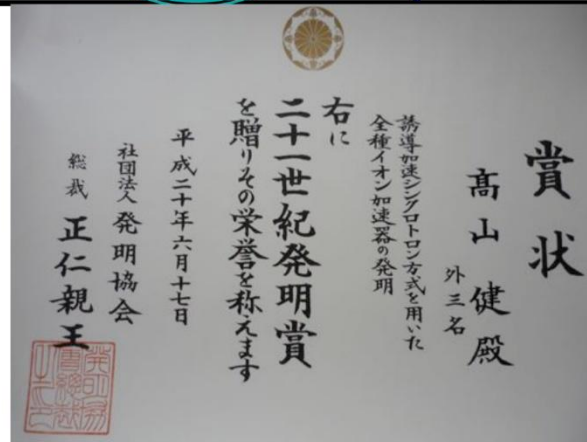 賞状
髙山健殿
外三名
誘導加速シンクロトロン方式を用いた
全種イオン加速器の発明
右に
二十一世紀発明賞
を贈りその栄誉を称えます
平成二十年六月十七日
社団法人 発明協会
総裁 正仁親王